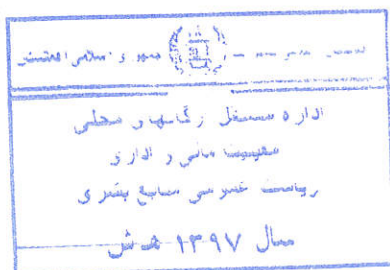 جمهوری اسلامی افغانستان
اداره مستقل ارگانهای محلی
معینیت مالی و اداری
ریاست عمومی منابع بشری
سال ۱۳۹۷ ه ش